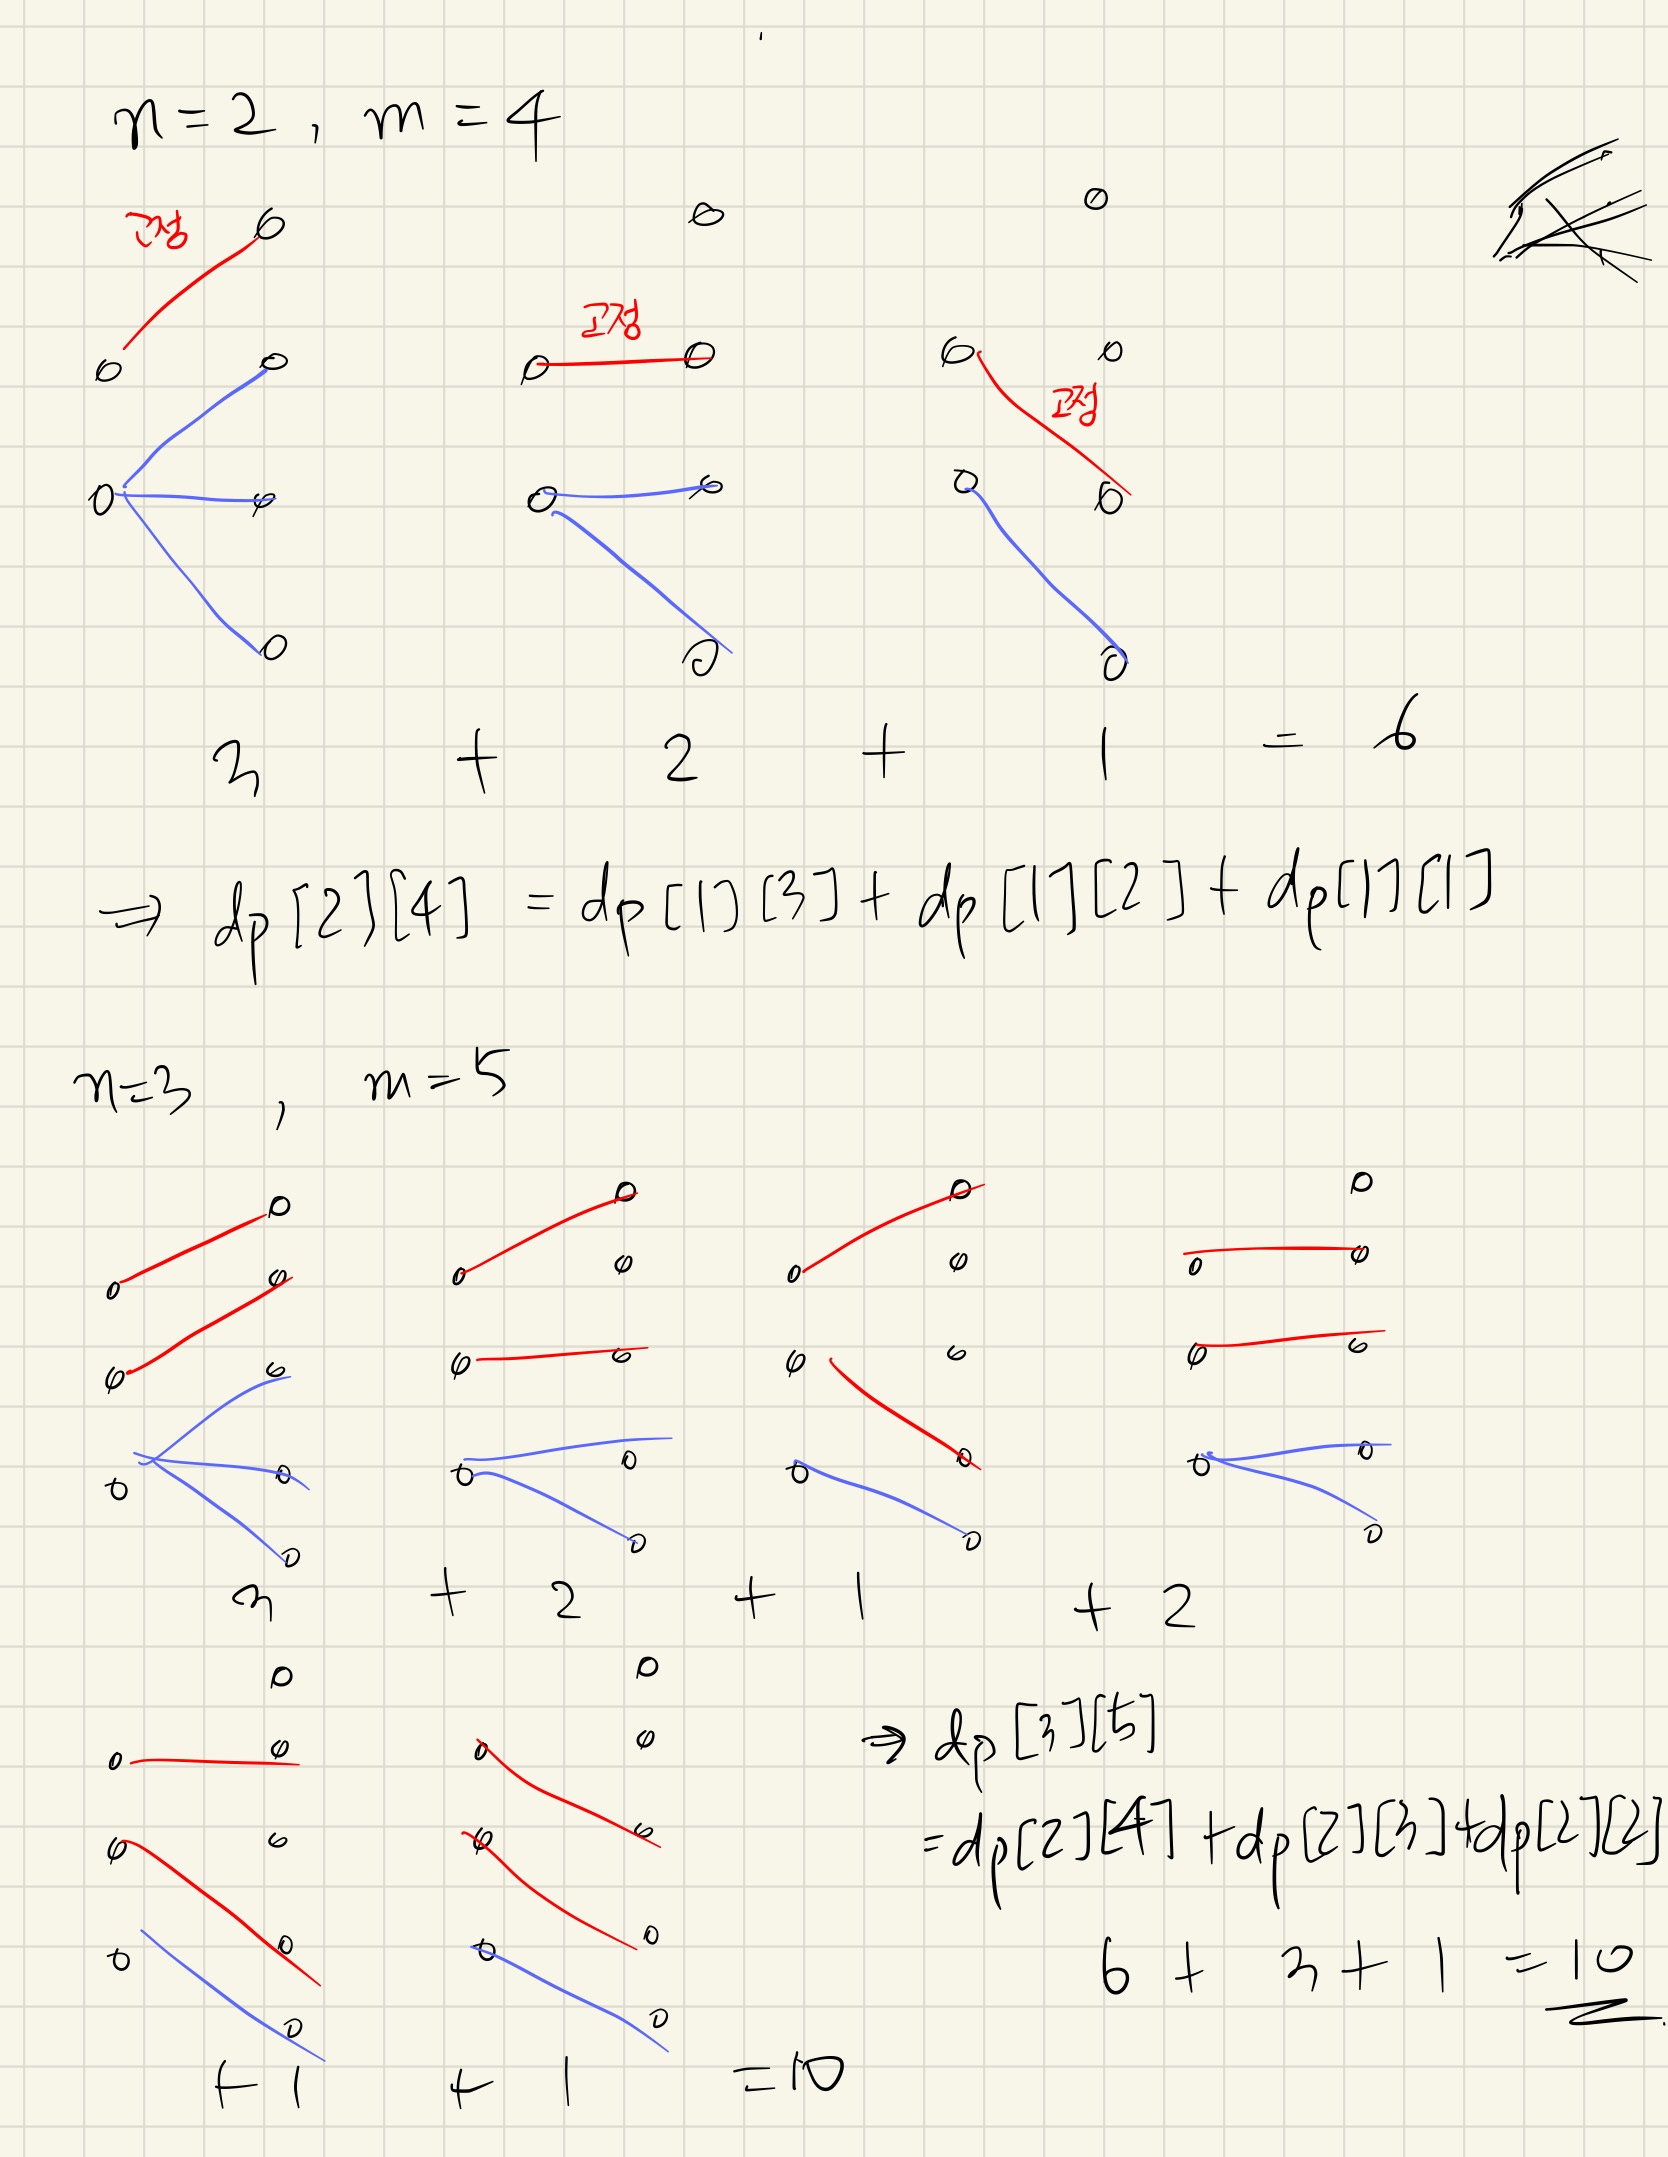 n=2, m=4
고정
고정
고정
3 + 2 + 1 = 6
⇒ dp[2][4] = dp[1][3] + dp[1][2] + dp[1][1]
n=3, m=5
3 + 2 + 1 + 2
+ 1 + 1 = 10
→ dp[3][5]
= dp[2][4] + dp[2][3] + dp[2][2]
6 + 3 + 1 = 10